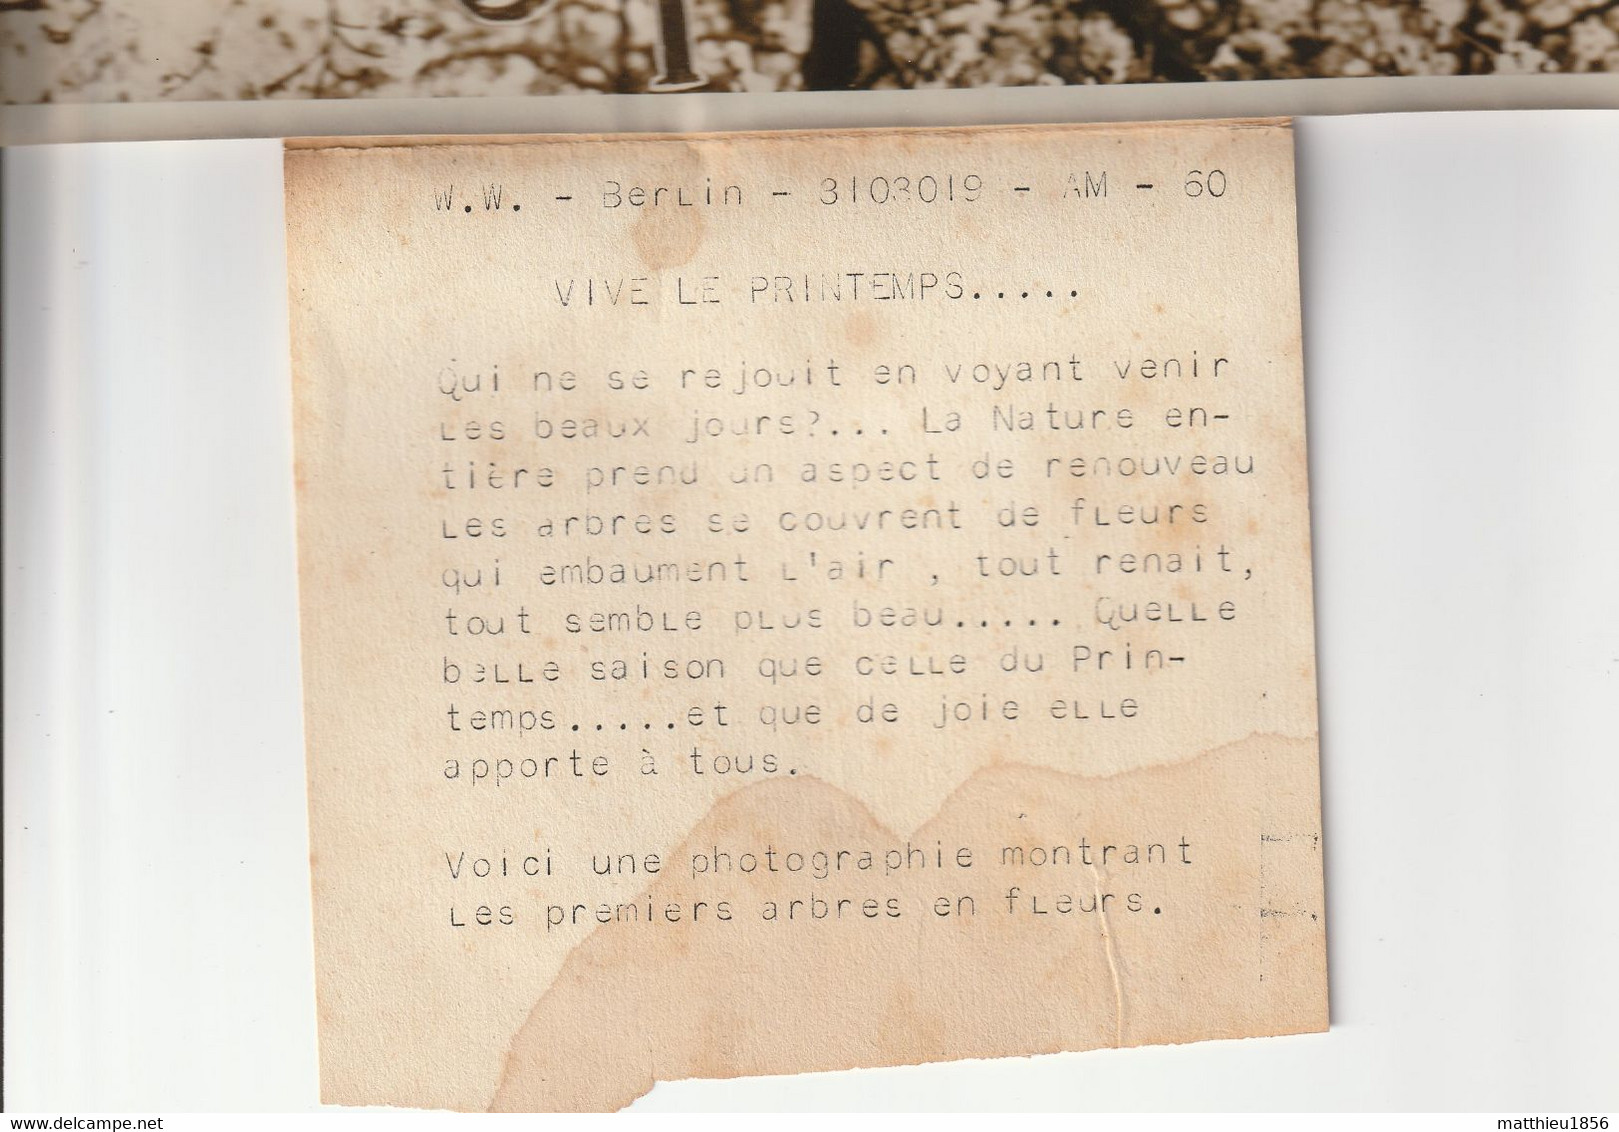 W.W. - Berlin - 3103019 - AM - 60
VIVE LE PRINTEMPS.....
Qui ne se rejouit en voyant venir
les beaux jours?... La Nature en-
tière prend un aspect de renouveau
les arbres se couvrent de fleurs
qui embaument l'air , tout renait,
tout semble plus beau..... Quelle
belle saison que celle du Prin-
temps.....et que de joie elle
apporte à tous.
Voici une photographie montrant
les premiers arbres en fleurs.
www.delcampe.net
matthieu1856